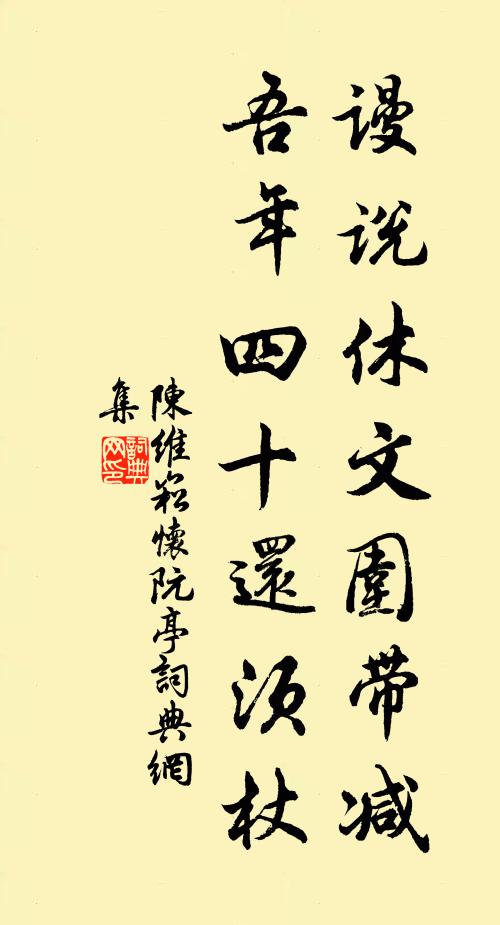 謾説休文圍帶減
吾年四十還須杖
陳維崧懷阮亭詞典網
集
詞典網印